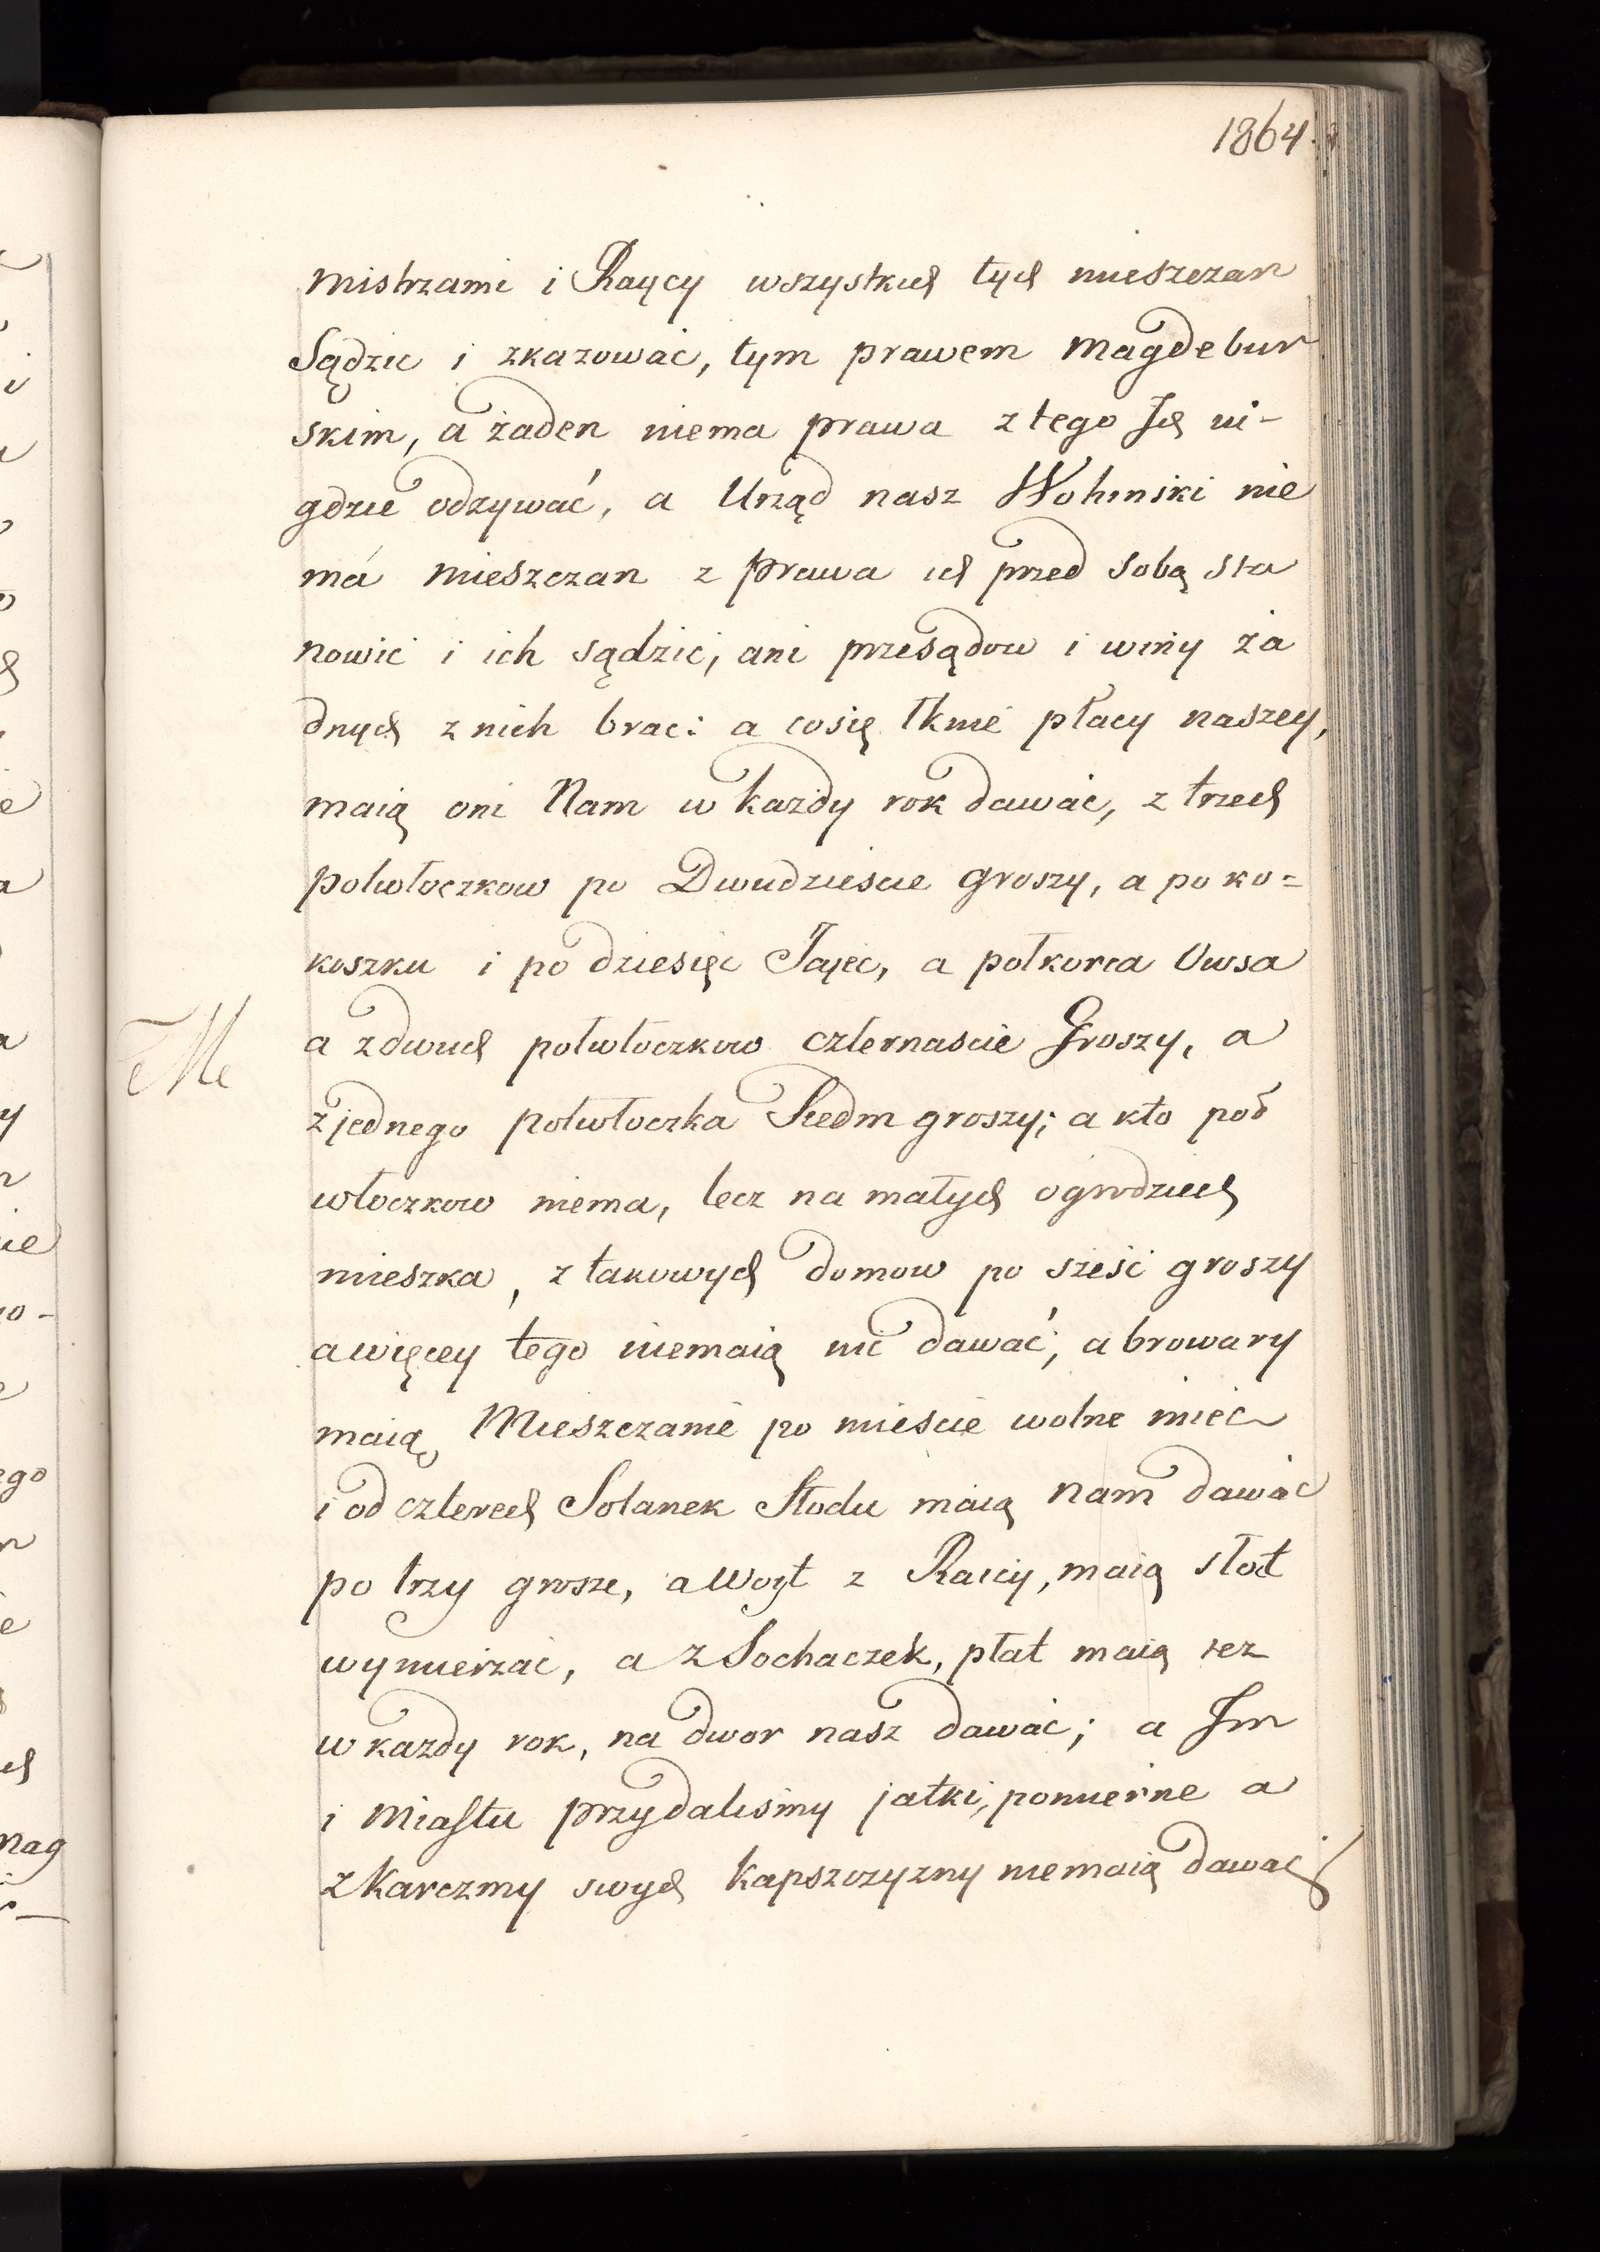 1864.
mistrzami i Raycy wszystkich tych mieszczan
Sądzic i zkazowac, tym prawem Magdebur
skim, a żaden niema prawa z tego Ich ni-
gdzie odzywać, a Urząd nasz Wohinski nie
má mieszczan z prawa ich przed sobą sta
nowic i ich sądzic, ani przesądow i winy ża
dnych z nich brac: a cosię tknie płacy naszey,
maią oni Nam w każdy rok dawac, z trzech
połwłoczkow po Dwudziescie groszy, a po ko=
koszku i po dziesięc Jajec, a połkorca Owsa
a z dwuch połwłoczkow czternascie Groszy, a
z jednego połwłoczka Siedm groszy; a kto poł
włoczkow niema, lecz na małych ogrodziech
mieszka, z takowych domow po sześć groszy
a więcey tego niemaią nic dawać; a browary
maią Mieszczanie po mieście wolne miec
i od czterech Solanek Słodu maią nam dawac
po trzy grosze, a Woyt z Raicy, maią słod
wymierzac, a z Sochaczek, płat maią tez
w kazdy rok, na dwor nasz dawac; a Im
i Miastu przydalismy jatki, pomierne a
z Karczmy swych kapszczyzny niemaią dawac